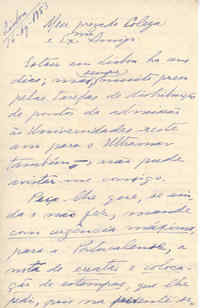 Lisboa
Meu prezado Colega
e Ex.mo Amigo
Estou em Lisboa há uns
dias; mas sempre muito preso
pelas tarefas de distribuição
de pontos de admissão
às Universidades este
ano para o Ultramar
também, não pude
avistar-me consigo.
Peço-lhe que, se ain-
da o não fez, mande
com urgência máxima
para a Portucalense, a
nota de erratas e coloca-
ção de estampas, que lhe
pedi, pois me